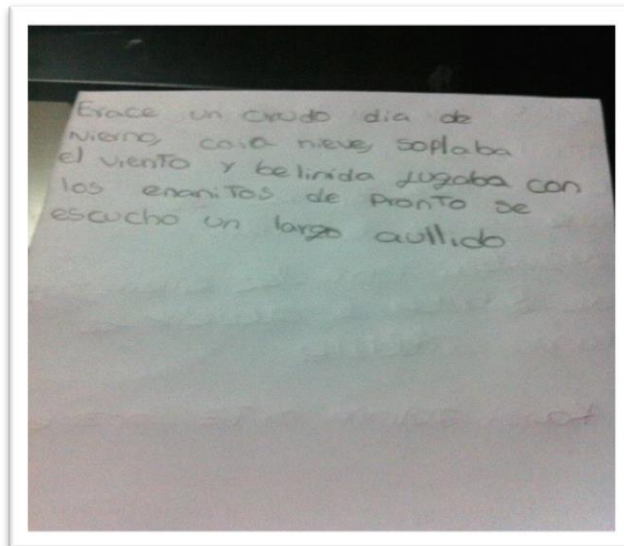 Erace un crudo dia de
Nierno, caia nieve, soplaba
el viento y belinida jugaba con
los enanitos de pronto se
escucho un largo aullido